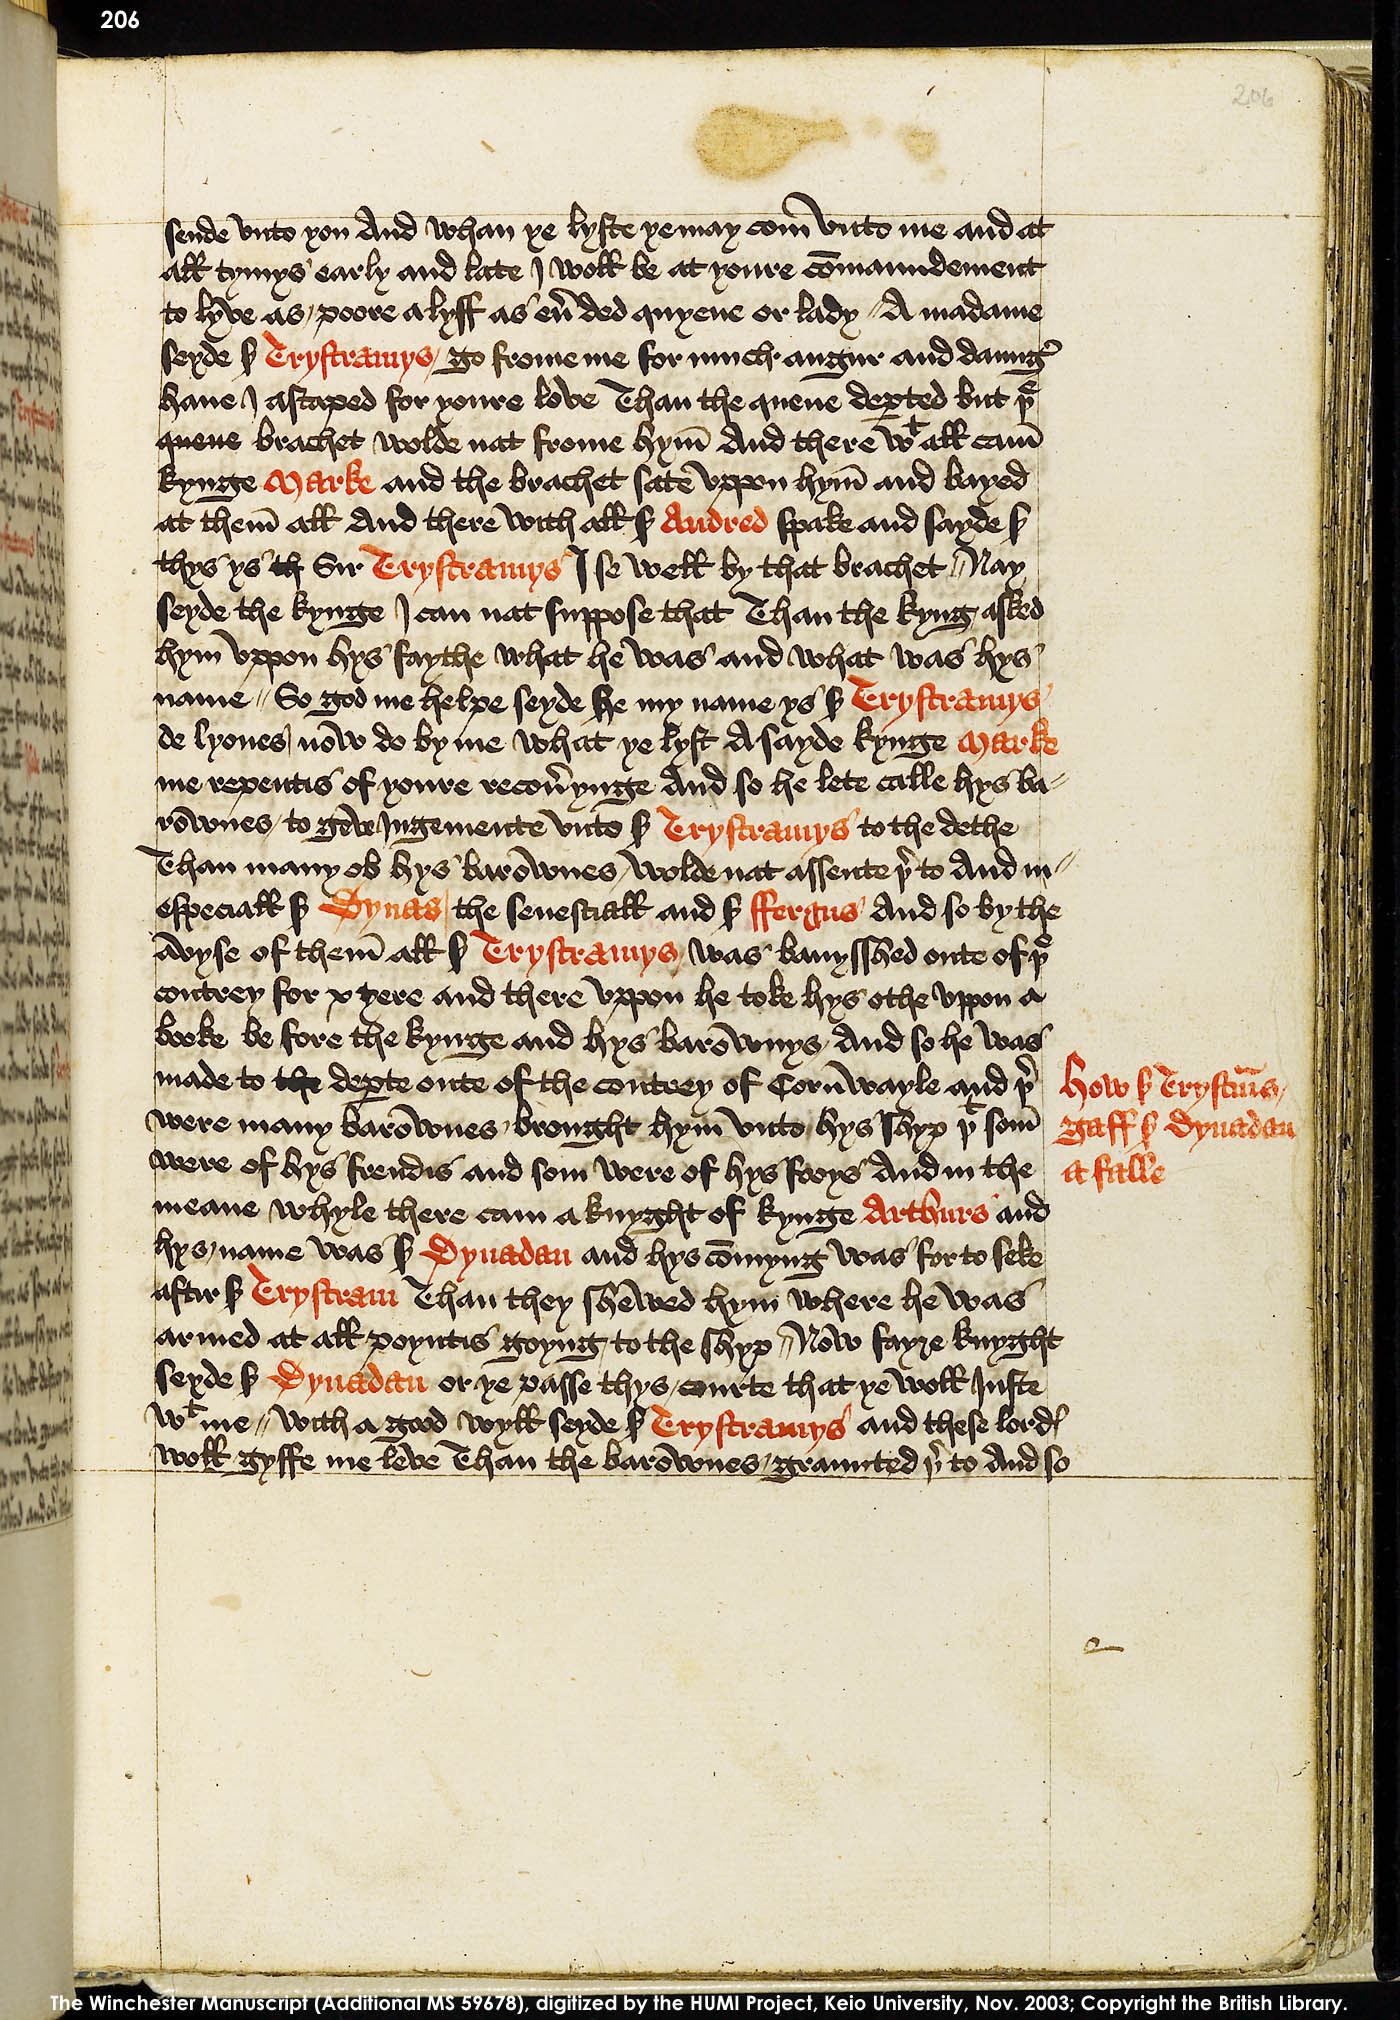 206
206
sende vnto you And whan ye lyste ye may com̄ vnto me and at
all tymys early and late I woll be at youre cōmaundement
to lyve as poore a lyff as eu̓ ded quyene or lady // A madame
seyde ẜ Trystramys go frome me for much angur and daungʳ
haue I ascaped for youre love Than the quene deꝑted but þᵉ
quene brachet wolde nat frome hym̄ And there wᵗ all cam̄
kynge Marke and the brachet sate vppon hym̄ and bayed
at them̄ all And there with all ẜ Andred spake and sayde ẜ
thys ys th Sir Trystramys I se well by that brachet // Nay
seyde the kynge I can nat suppose that Than the kyng asked
hym vppon hys faythe what he was and what was hys
name // So god me helpe seyde he my name ys ẜ Trystramys
de lyones now do by me what ye lyst A sayde kynge Marke
me repentis of youre recou̓ynge And so he lete calle hys ba-
rownes to geve Jugemente vnto ẜ Trystramys to the dethe
Than many ob hys barownes wolde nat assente þ̓to And in-
especiall ẜ Dynas the senesciall and ẜ ffergus And so by the
avyse of them̄ all ẜ Trystramys was banysshed oute of þᵉ
contrey for x yere and there vppon he toke hys othe vppon a
booke be fore the kynge and hys barownys And so he was
made to the deꝑte oute of the contrey of Cornwayle and þ̓
were many barownes brought hym vnto hys shyp þᵗ som̄
were of hys frendis and som were of hys fooys And in the
meane whyle there cam a knyght of kynge Arthurs and
hys name was ẜ Dynadan and hys cōmyng was for to seke
aftir ẜ Trystram Than they shewed hym where he was
armed at all poyntis goyng to the shyp // Now fayre knyght
seyde ẜ Dynadan or ye passe thys courte that ye woll Juste
wᵗ me // with a good wyll seyde ẜ Trystramys and these lordꝭ
woll gyffe me leve Than the barownes graunted þ̓to And so
How ẜ Trystrūs
gaff ẜ Dynadan
a falle
The Winchester Manuscript (Additional MS 59678), digitized by the HUMI Project, Keio University, Nov. 2003; Copyright the British Library.